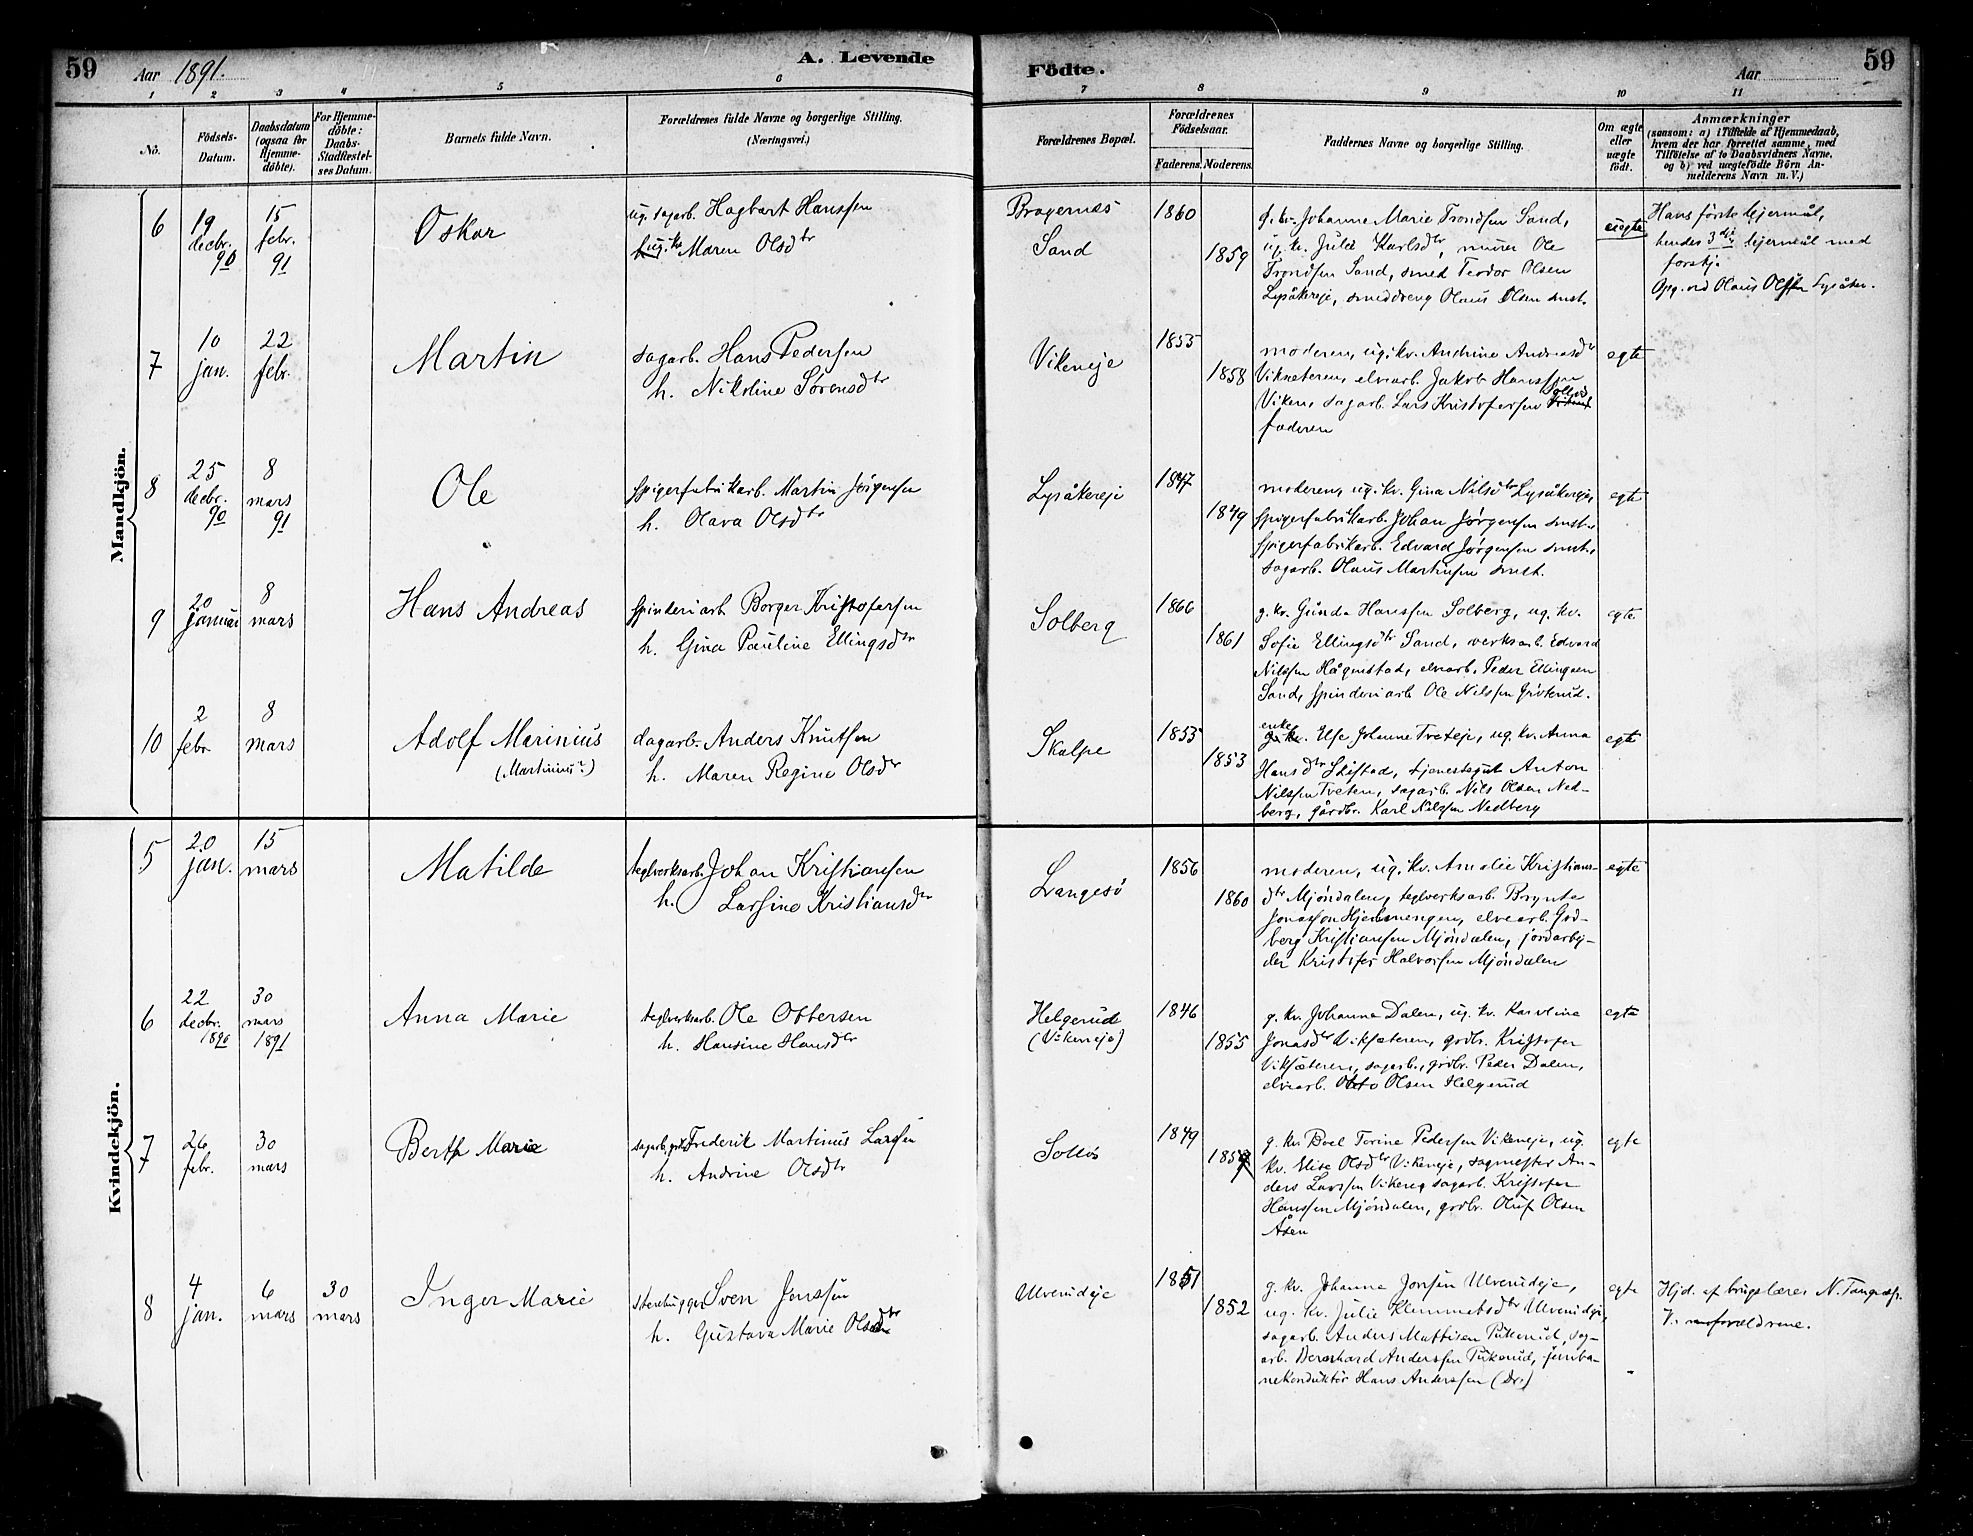 59 Aar 1891. A. Levende Födte. Aar 59
1 2 3 4 5 6 7 8 9 10 11
No.
Födsels-
Datum.
Daabsdatum
(ogsaa for
Hjemme-
döbte).
For Hjemme-
döbte:
Daabs-
Stadfæstel-
ses Datum.
Barnets fulde Navn.
Forældrenes fulde Navne og borgerlige Stilling.
(Næringsvei.)
Forældrenes Bopæl.
Forældrenes
Födselsaar.
Faderens. Moderens.
Faddernes Navne og borgerlige Stilling.
Om ægte
eller
uægte
födt.
Anmærkninger
(saasom: a) i Tilfælde af Hjemmedaab,
hvem der har forrettet samme, med
Tilföielse af to Daabsvidners Navne,
og b) ved uægtefödte Börn An-
melderens Navn m. V.)
Mandkjön.
6
19
decbr.
90
15
febr.
91
Oskar
ug. sagarb. Hagbart Hanssen
kv. Maren Olsdtr
Bragernæs
Sand
1860
1859
g. kv. Johanne Marie Trondsen Sand,
ug. kv. Julie Karlsdtr, murer Ole
Trondsen Sand, smed Teodor Olsen
Lysåkereje, smeddreng Olaus Olsen smst.
uegte
Hans förste lejermål,
hendes 3die lejermål med
forskj.
Opg. ved Olaus Olsen Lysåker.
7
10
jan.
22
febr.
Martin
sagarb. Hans Pedersen
h. Nikoline Sørensdtr
Vikeneje
1855
1858
moderen, ug. kv. Andrine Andreasdtr
Vikseteren, elvearb. Jakob Hanssen
Viken, sagarb. Lars Kristofersen Solløs
faderen
egte
8
25
decbr.
90
8
mars
91
Ole
spigerfabrikarb. Martin Jørgensen
h. Olava Olsdtr
Lysåkereje
1847
1849
moderen, ug. kv. Gina Nilsdtr Lysåkereje,
spigerfabrikarb. Johan Jørgensen smst.,
spigerfabrikarb. Edvard Jørgensen smst.,
sagarb. Olaus Martinsen smst.
egte
9
20
januar
8
mars
Hans Andreas
spinderiarb Borger Kristofersen
h. Gina Pauline Ellingsdtr
Solberg
1866
1861
g. kv. Gunda Hanssen Solberg, ug. kv.
Sofie Ellingsdtr Sand, verksarb. Edvard
Nilssen Hågenstad, elvearb. Peder Ellingsen
Sand, spinderiarb Ole Nilssen
egte
10
2
febr
8
mars
Adolf Marinius
(Martinius?)
dagarb. Anders Knutsen
h. Maren Regine Olsdtr
Skalpe
1853
1853
enke
Else Johanne Tveteje, ug. kv. Anna
Hansdtr Skistad, tjenestegut Anton
Nilssen Tveten, sagarb. Nils Olsen Ned-
berg, gårdbr. Karl Nilssen Nedberg
egte
Kvindekjön.
5
20
jan.
15
mars
Matilde
teglverksarb. Johan Kristiansen
h. Larsine Kristiansdtr
Langesø
1856
1860
moderen, ug. kv. Amalie Kristians-
dtr Mjøndalen, teglverksarb. Brynte
Jonasson Hjelmengen, elvearb. God-
berg Kristiansen Mjøndalen, jordarbej-
der Kristofer Halvorsen Mjøndalen
egte
6
22
decbr.
1890
30
mars
1891
Anna Marie
teglverksarb. Ole Ottersen
h. Hansine Hansdtr
Helgerud
(Vikeneje)
1846
1855
g. kv. Johanne Dalen, ug. kv. Karoline
Jonasdtr Viksæteren, grdbr. Kristofer
Viksæteren, sagarb., grdbr. Peder Dalen,
elvearb. Otto Olsen Helgerud
egte
7
26
febr.
30
mars
Berth Marie
sagarb. Frederik Martinus Larsen
h. Andrine Olsdtr
Solløs
1849
1857
g. kv. Boel Torine Pedersen Vikeneje, ug.
kv. Elise Olsdtr Vikeneje, sagmester An-
ders Larssen Vikeneje sagarb. Kristofer
Hanssen Mjøndalen, grdbr. Oluf Olsen
Åsen
egte
8
4
jan.
6
mars
30
mars
Inger Marie
stenhugger Sven Jonssen
h. Gustava Marie Olsdtr
Ulverudeje
1851
1852
g. kv. Johanne Jonsen Ulverudeje,
ug. kv. Julie Klemmetsdtr Ulverudeje,
sagarb. Anders Mattisen Pukerud, sag-
arb. Bernhard Anderssen Pukerud, jernba-
nekonduktør Hans Anderssen (Dr.)
egte
Hjd. af brugslærer N. Tangraas.
V. forældrene.